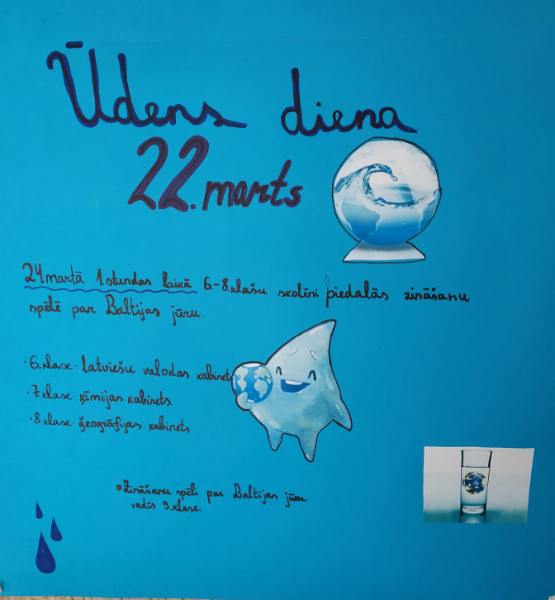 Ūdens diena
22. marts
24 martā 1 stundas laikā 6.-8.klašu skolēni piedalās zināšanu
spēlē par Baltijas jūru.
· 6. klase - latviešu valodas kabinets
· 7 klase - ķīmijas kabinets
· 8 klase - ģeogrāfijas kabinets
Zināšanu spēli par Baltijas jūru
vadīs 9. klase.